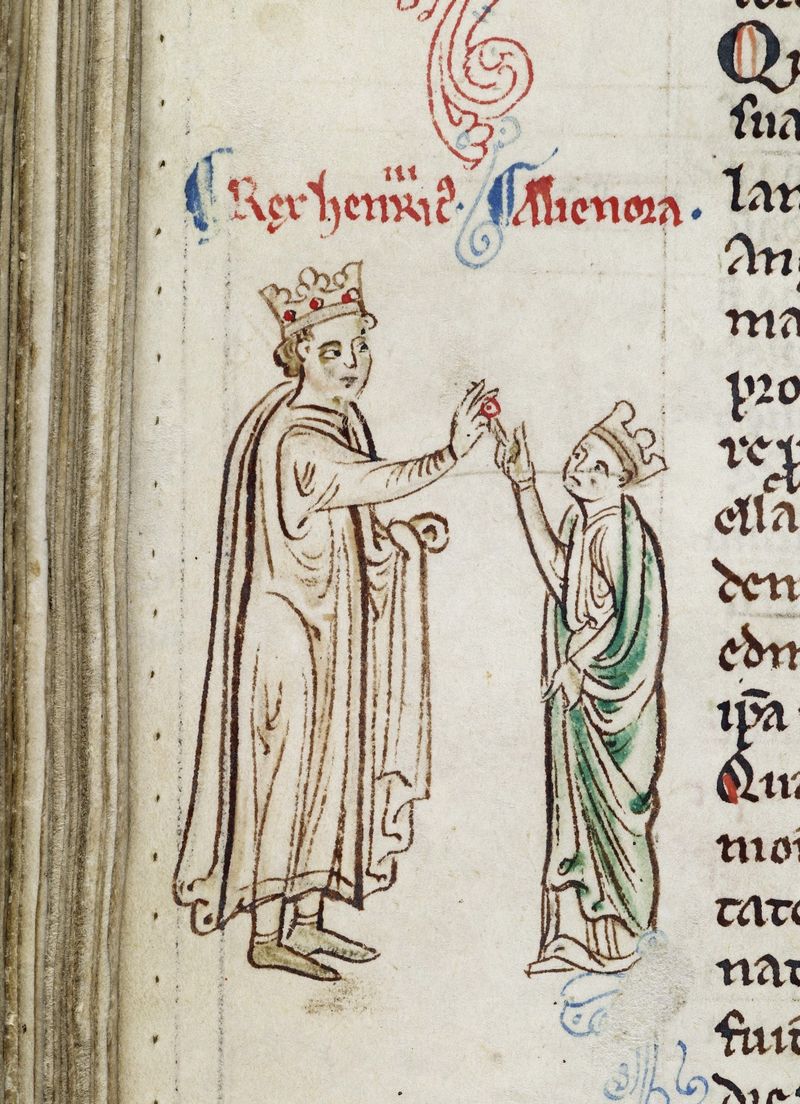 Rex henricꝰ iii. Alienora.
Qu
sua
lan
Ang
ma
pro
ella
den
edm
ip̄a
Qua
moı
tato
nat
fuit
die